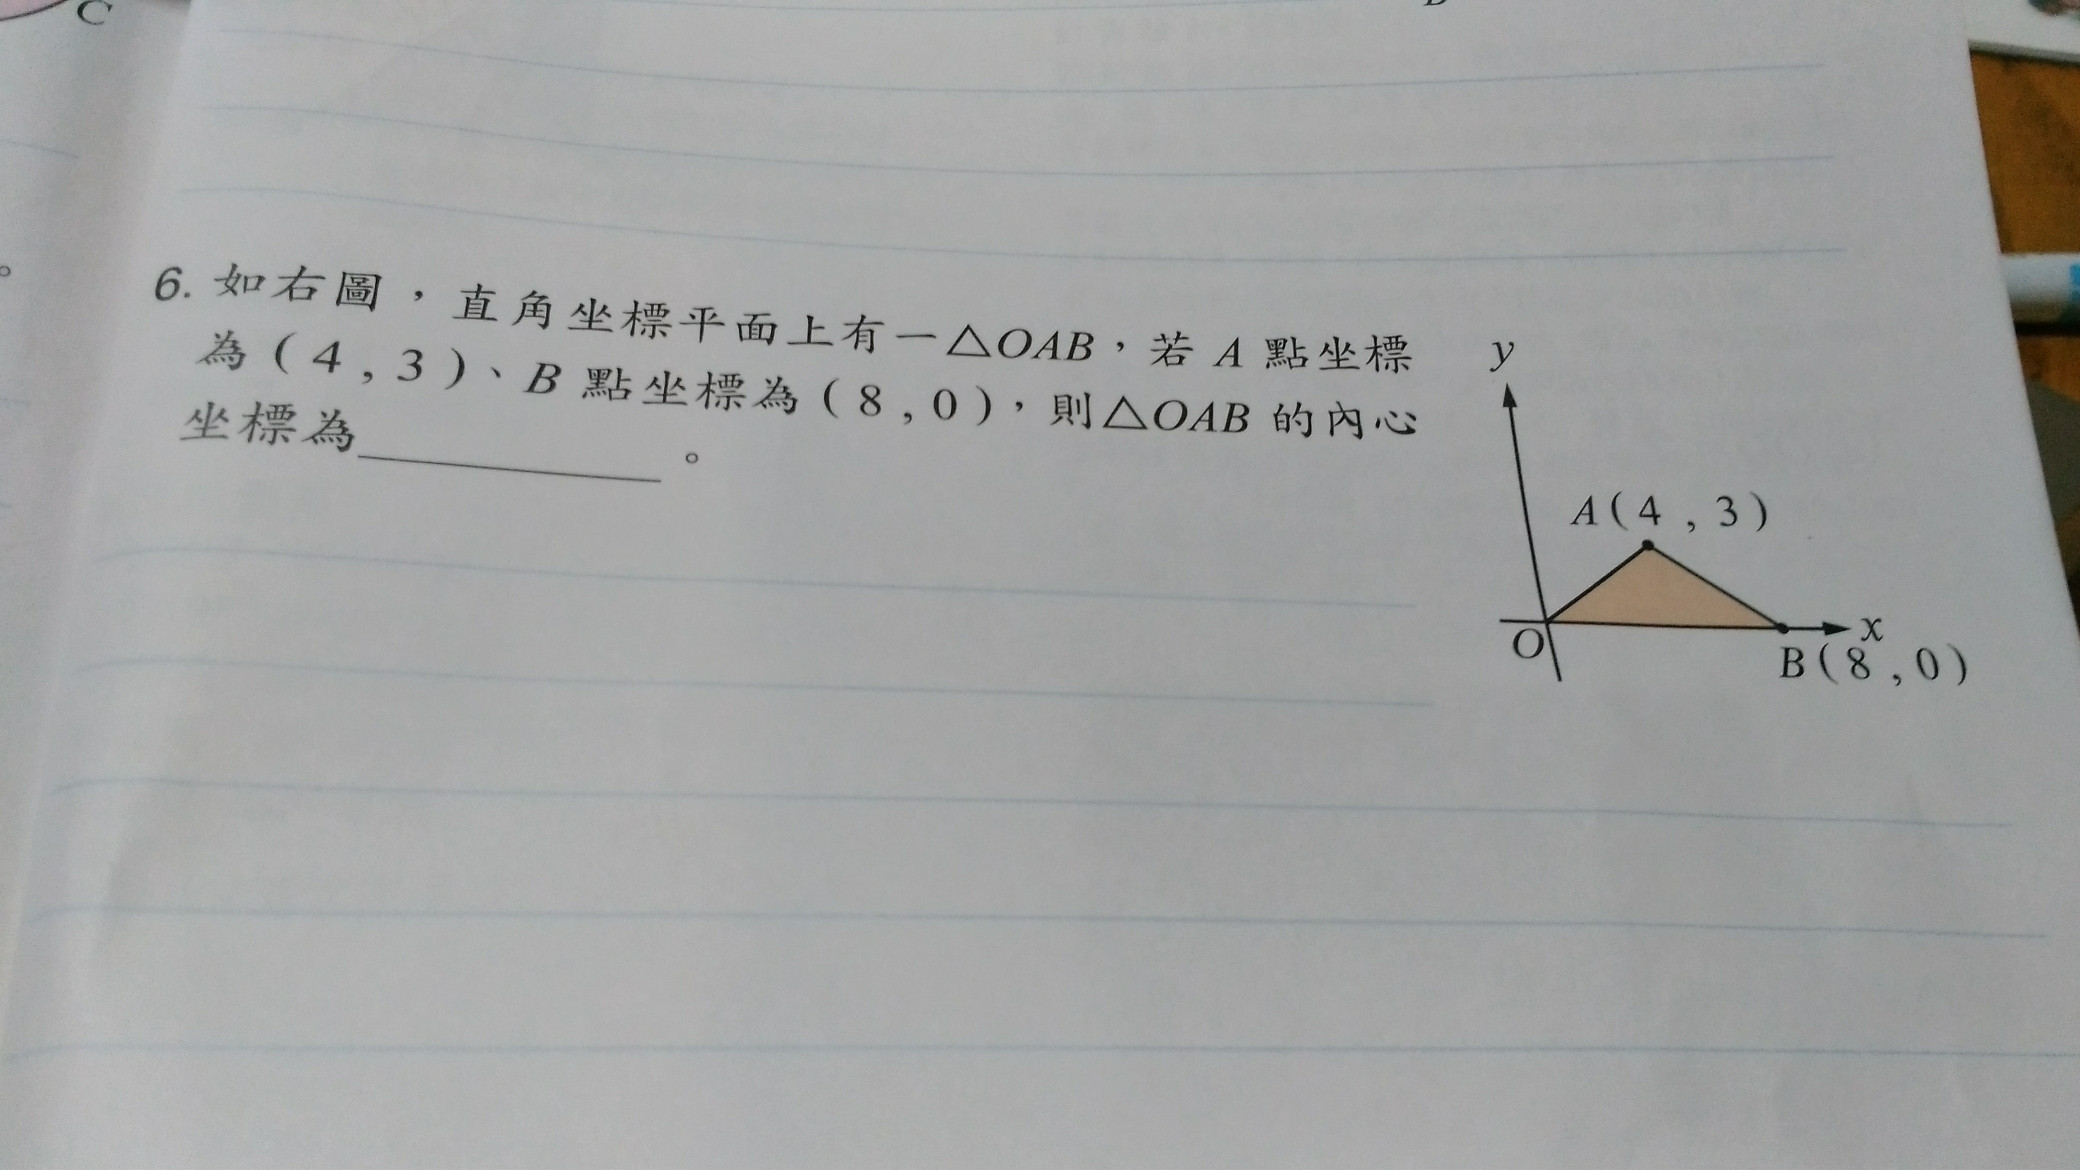 C
6. 如右圖，直角坐標平面上有一△OAB，若 A 點坐標
為 ( 4 , 3 )、B 點坐標為 ( 8 , 0 )，則△OAB 的內心
坐標為＿＿＿＿＿。
y
A( 4 , 3 )
O
x
B( 8 , 0 )